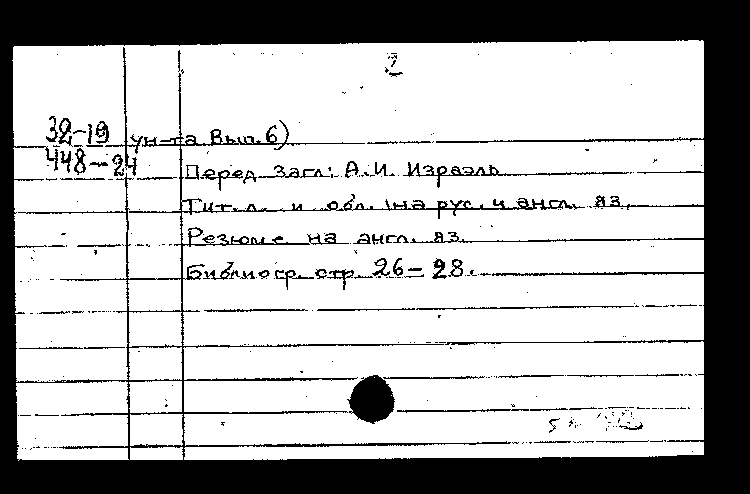 2
32-19 ун-та Вып. 6)
448-24 Перед загл: А.И. Израэль
Тит. л. и обл. на рус. и англ. яз.
Резюме на англ. яз.
Библиогр. стр. 26-28.